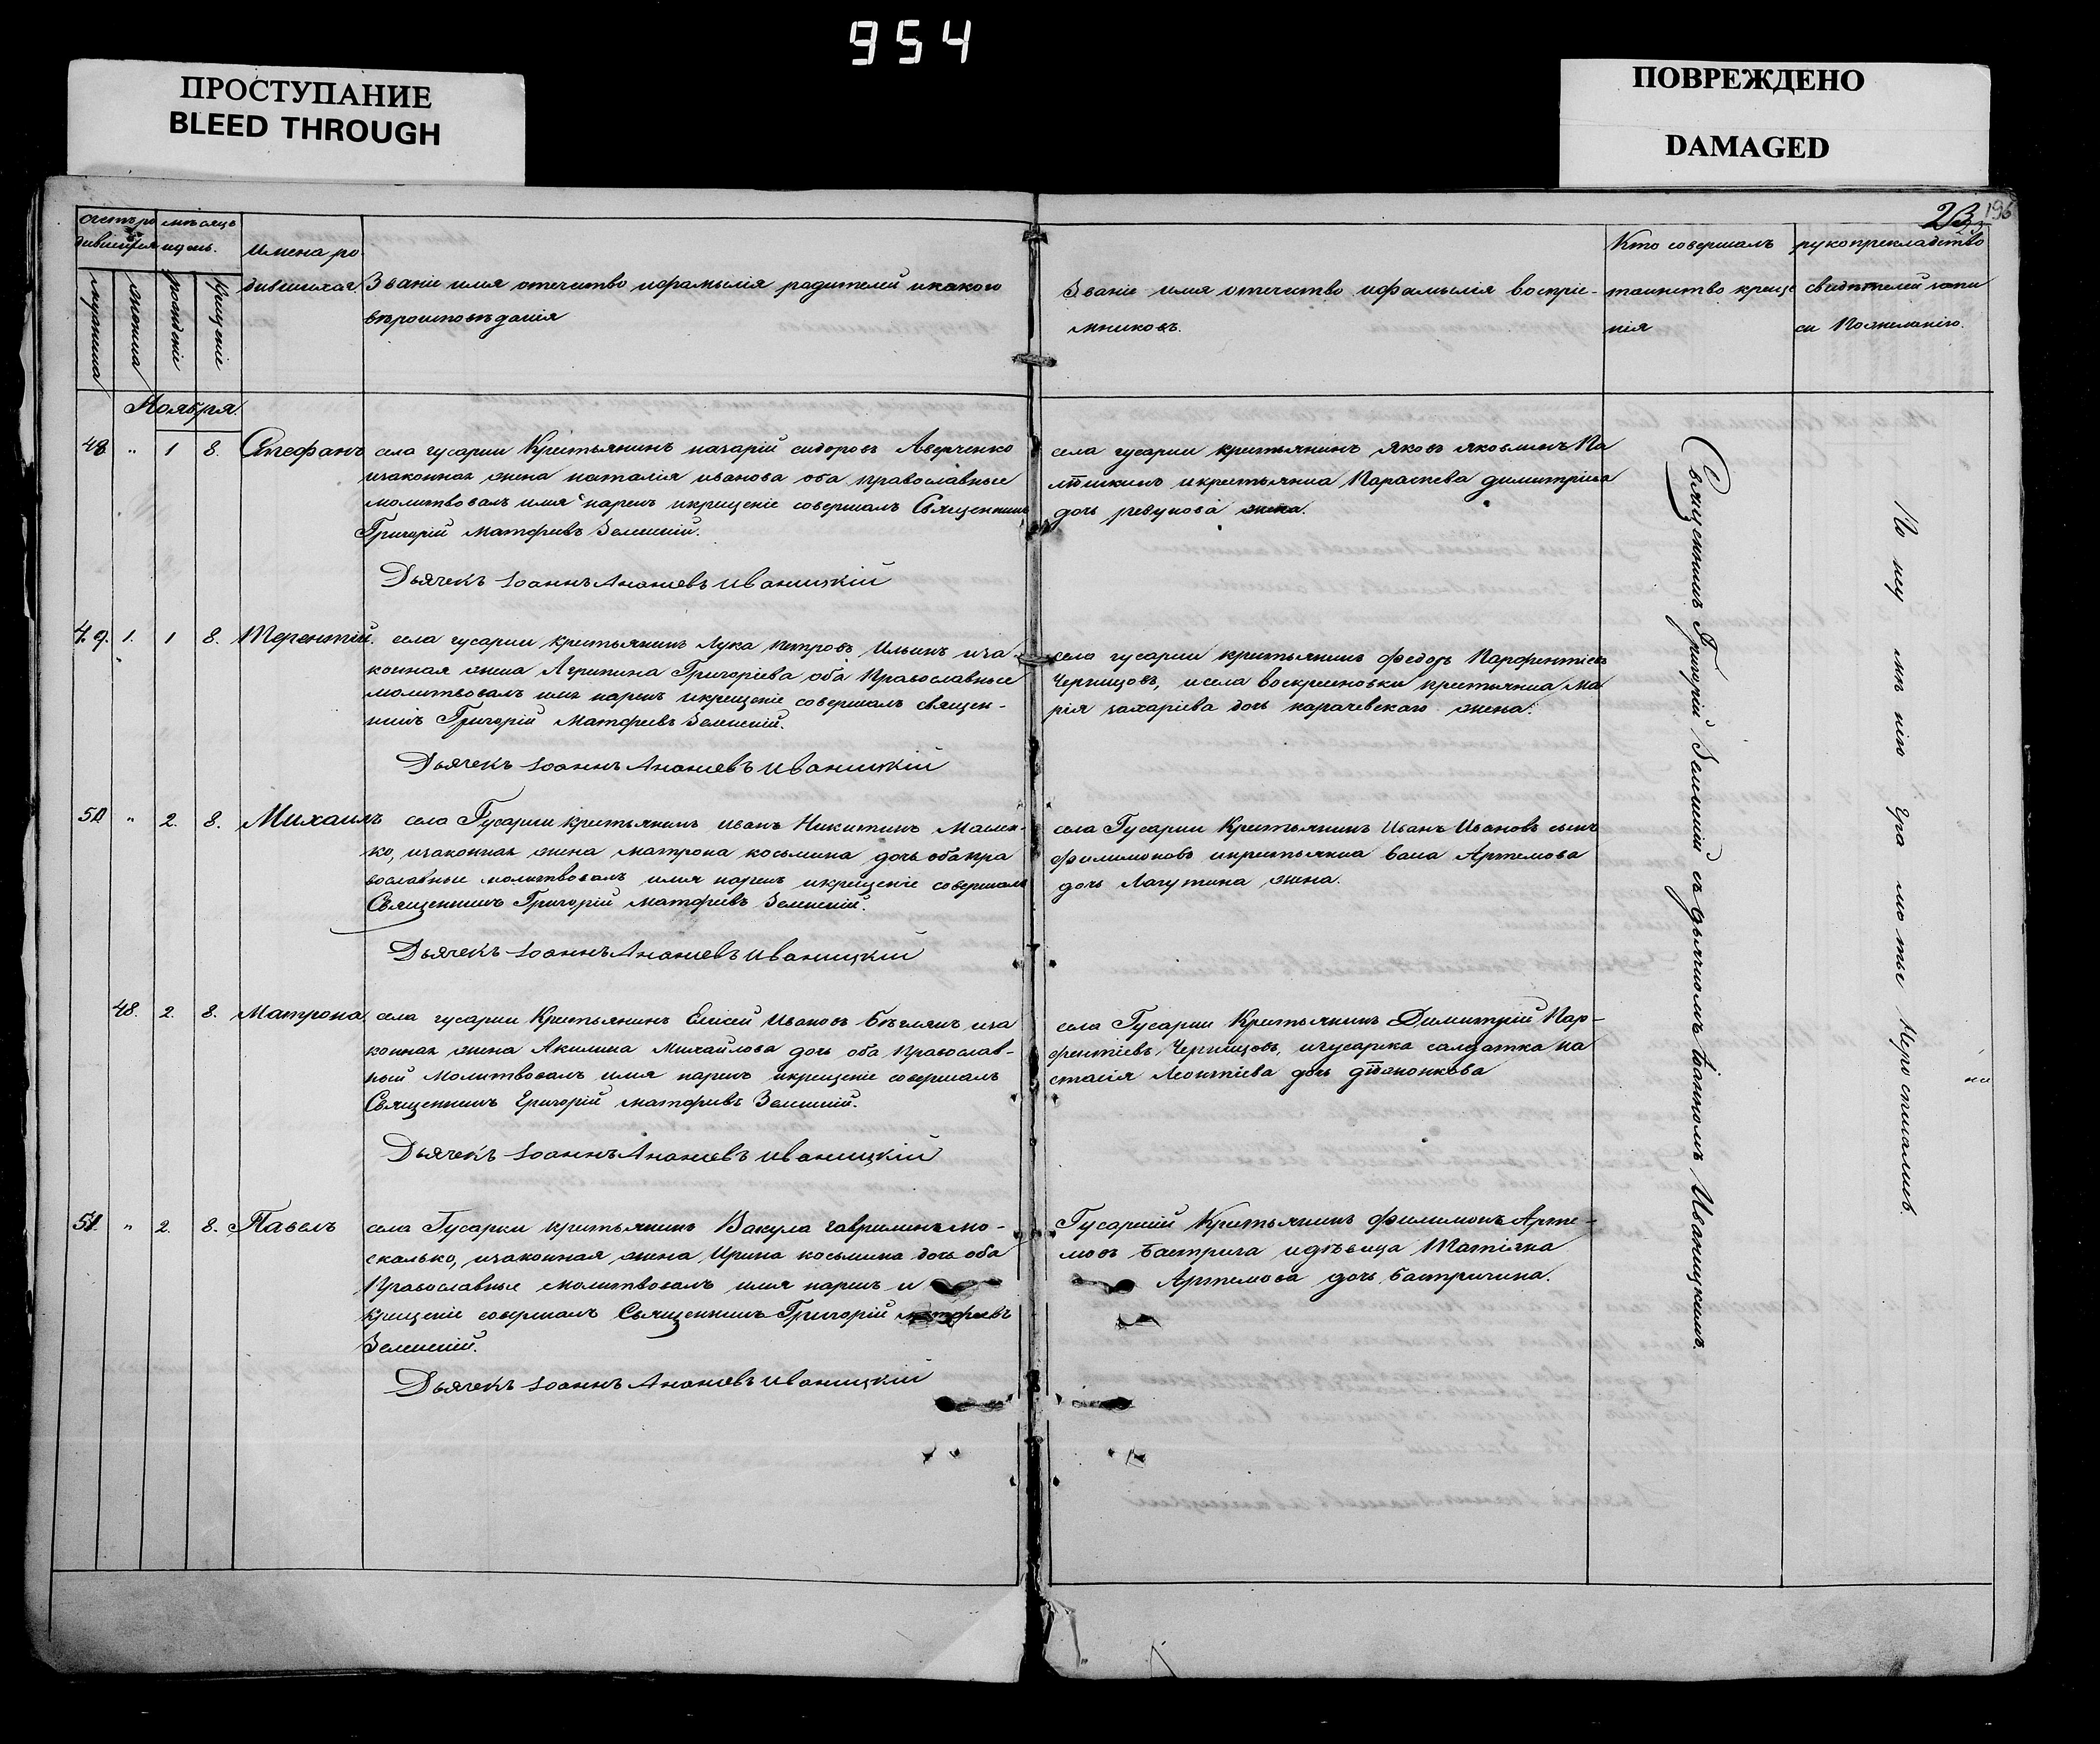 954
ПРОСТУПАНИЕ
BLEED THROUGH
ПОВРЕЖДЕНО
DAMAGED
23
196
мѣсяцъ
Имена ро
дившихся.
мужеска
женска
рожденіе
крещеніе
Званіе имя отечество ифамилія родителей икакого
вѣроисповѣданія
Званіе имя отечество ифамилія воспріе-
мниковъ.
Кто совершалъ
таинство креще
нія
рукоприкладство
свидѣтелей запи
си Пожеланію.
Ноября.
48 " 1 8. Стефанъ
села гусарки Крестьянинъ назарій сидоровъ Аверченко
изаконная жена наталія иванова оба православные
молитвовалъ имя нарекъ икрещеніе совершалъ Священникъ
Григорій Матфеевъ Зелинскій.
Дьячекъ Іоаннъ Ананіевъ Иваницкій
села гусарки крестьянинъ яковъ яковлевъ
икрестьянка Параскева димитріева
дочь ревунова жена.
49. 1. 1 8. Терентій.
села гусарки крестьянинъ Лука петровъ Ильинъ иза
конная жена Агрипина Григоріева оба Православные
молитвовалъ имя нарекъ икрещеніе совершалъ священ-
никъ Григорій Матфеевъ Зелинскій.
Дьячекъ Іоаннъ Ананіевъ Иваницкій
села гусарки крестьянинъ федоръ Парфентіевъ
Чернцовъ, исела воскресеновки крестьянка Ма
рія захаріева дочь карачевскаго жена.
50 " 2. 8. Михаилъ
села Гусарки крестьянинъ иванъ Никитинъ
ко, изаконная жена матрона косьмина дочь оба пра
вославные молитвовалъ имя нарекъ икрещеніе совершалъ
Священникъ Григорій матфеевъ Зелинскій.
Дьячекъ Іоаннъ Ананіевъ Иваницкій
села Гусарки Крестьянинъ Иванъ Ивановъ сынъ
филимоновъ икрестьянка васа Артемова
дочь Лагутина жена.
48. 2. 8. Матрона
села гусарки Крестьянинъ Елисей Ивановъ иза
конная жена Акилина Михайлова дочь оба Православ-
ный Молитвовалъ имя нарекъ икрещеніе совершалъ
Священникъ Григорій матфеевъ Зелинскій.
Дьячекъ Іоаннъ Ананіевъ Иваницкій
села Гусарки Крестьянинъ Димитрій Пар-
фентіевъ Чернцовъ, игусарка салдатка на
стасія Леонтіева дочь
51 " 2. 8. Павелъ
села Гусарки крестьянинъ Вакула гавриловъ мо-
скалько, изаконная жена Ирина косьмина дочь оба
Православные молитвовалъ имя нарекъ и
крещеніе совершалъ Священникъ Григорій матфеевъ
Зелинскій.
Дьячекъ Іоаннъ Ананіевъ Иваницкій
Гусарскій Крестьянинъ филимонъ Арте-
мовъ Бастрыга идѣвица Татіяна
Артемова дочь Бастричина.
Священникъ Григорій Зелинскій съ дьячкомъ Іоанномъ Иваницкимъ.